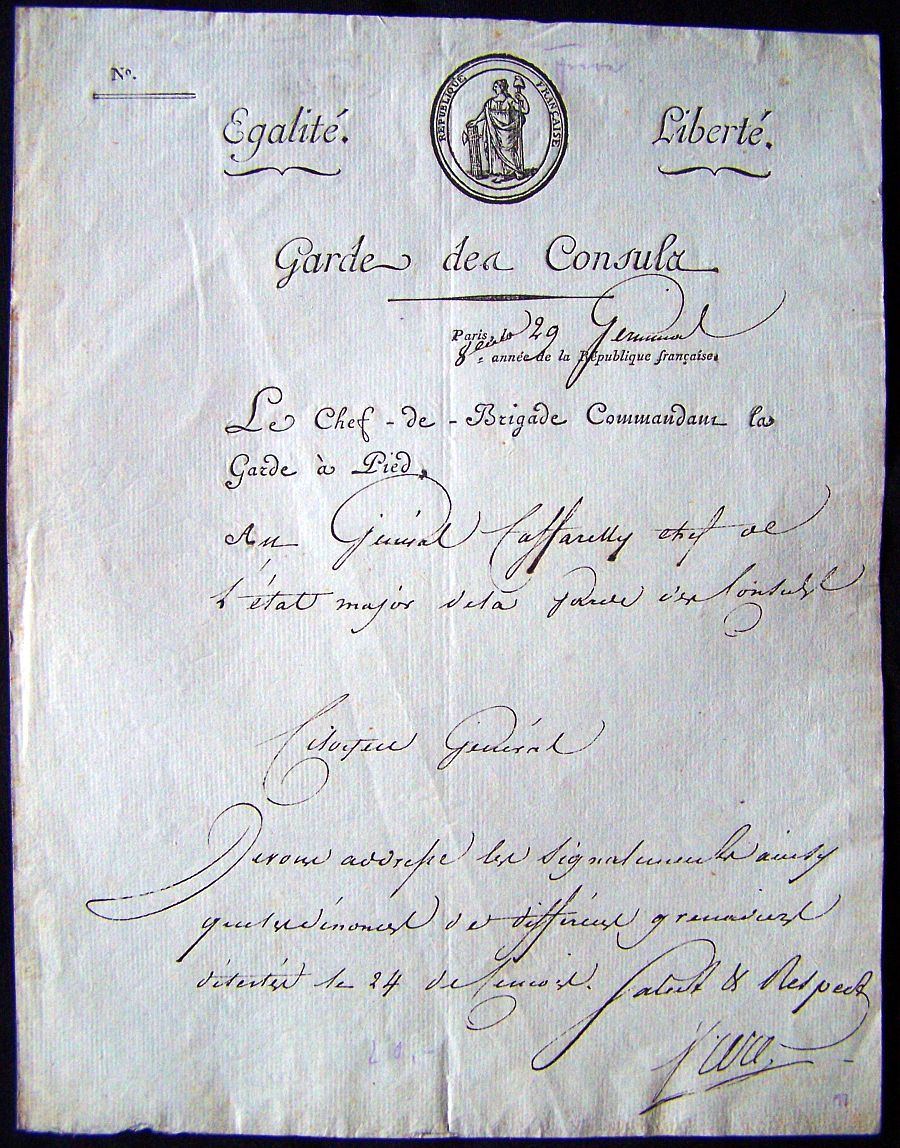 N.o
RÉPUBLIQUE FRANÇAISE
Egalité. Liberté.
Garde des Consuls
Paris, le 29 Germinal
8e année de la République française.
Le Chef-de-Brigade Commandant la
Garde à Pied,
Au Général Caffarelly chef de
L'état major dela Garde des Consuls
Citoyen Général
Je vous addresse les signalements ainsy
que les dénonces de différens grenadiers
désertés le 24 de ce mois. Salut & Respect